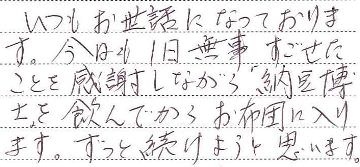 いつもお世話になっておりま
す。今日も1日無事すごせた
ことを感謝しながら「納豆博
士」を飲んでからお布団に入り
ます。ずっと続けようと思います。